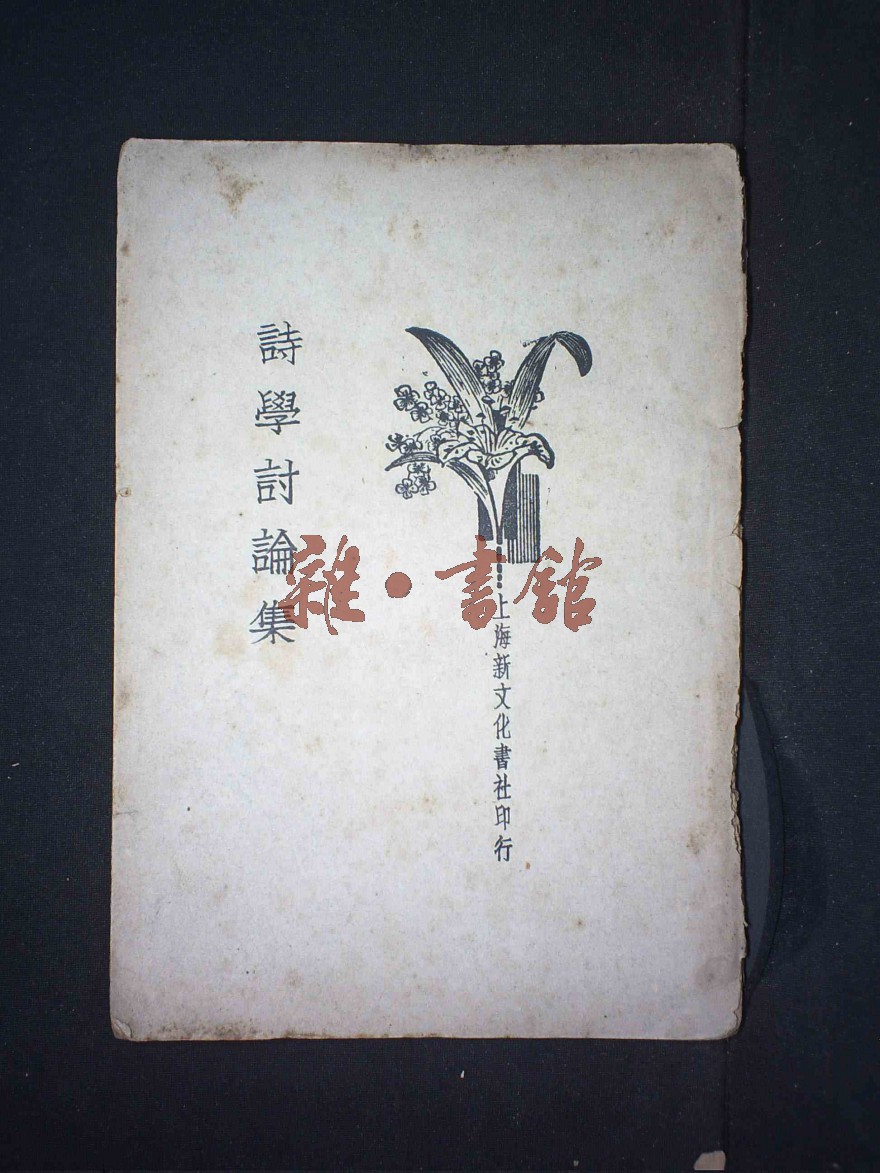 詩學討論集
上海新文化書社印行
雜·書館